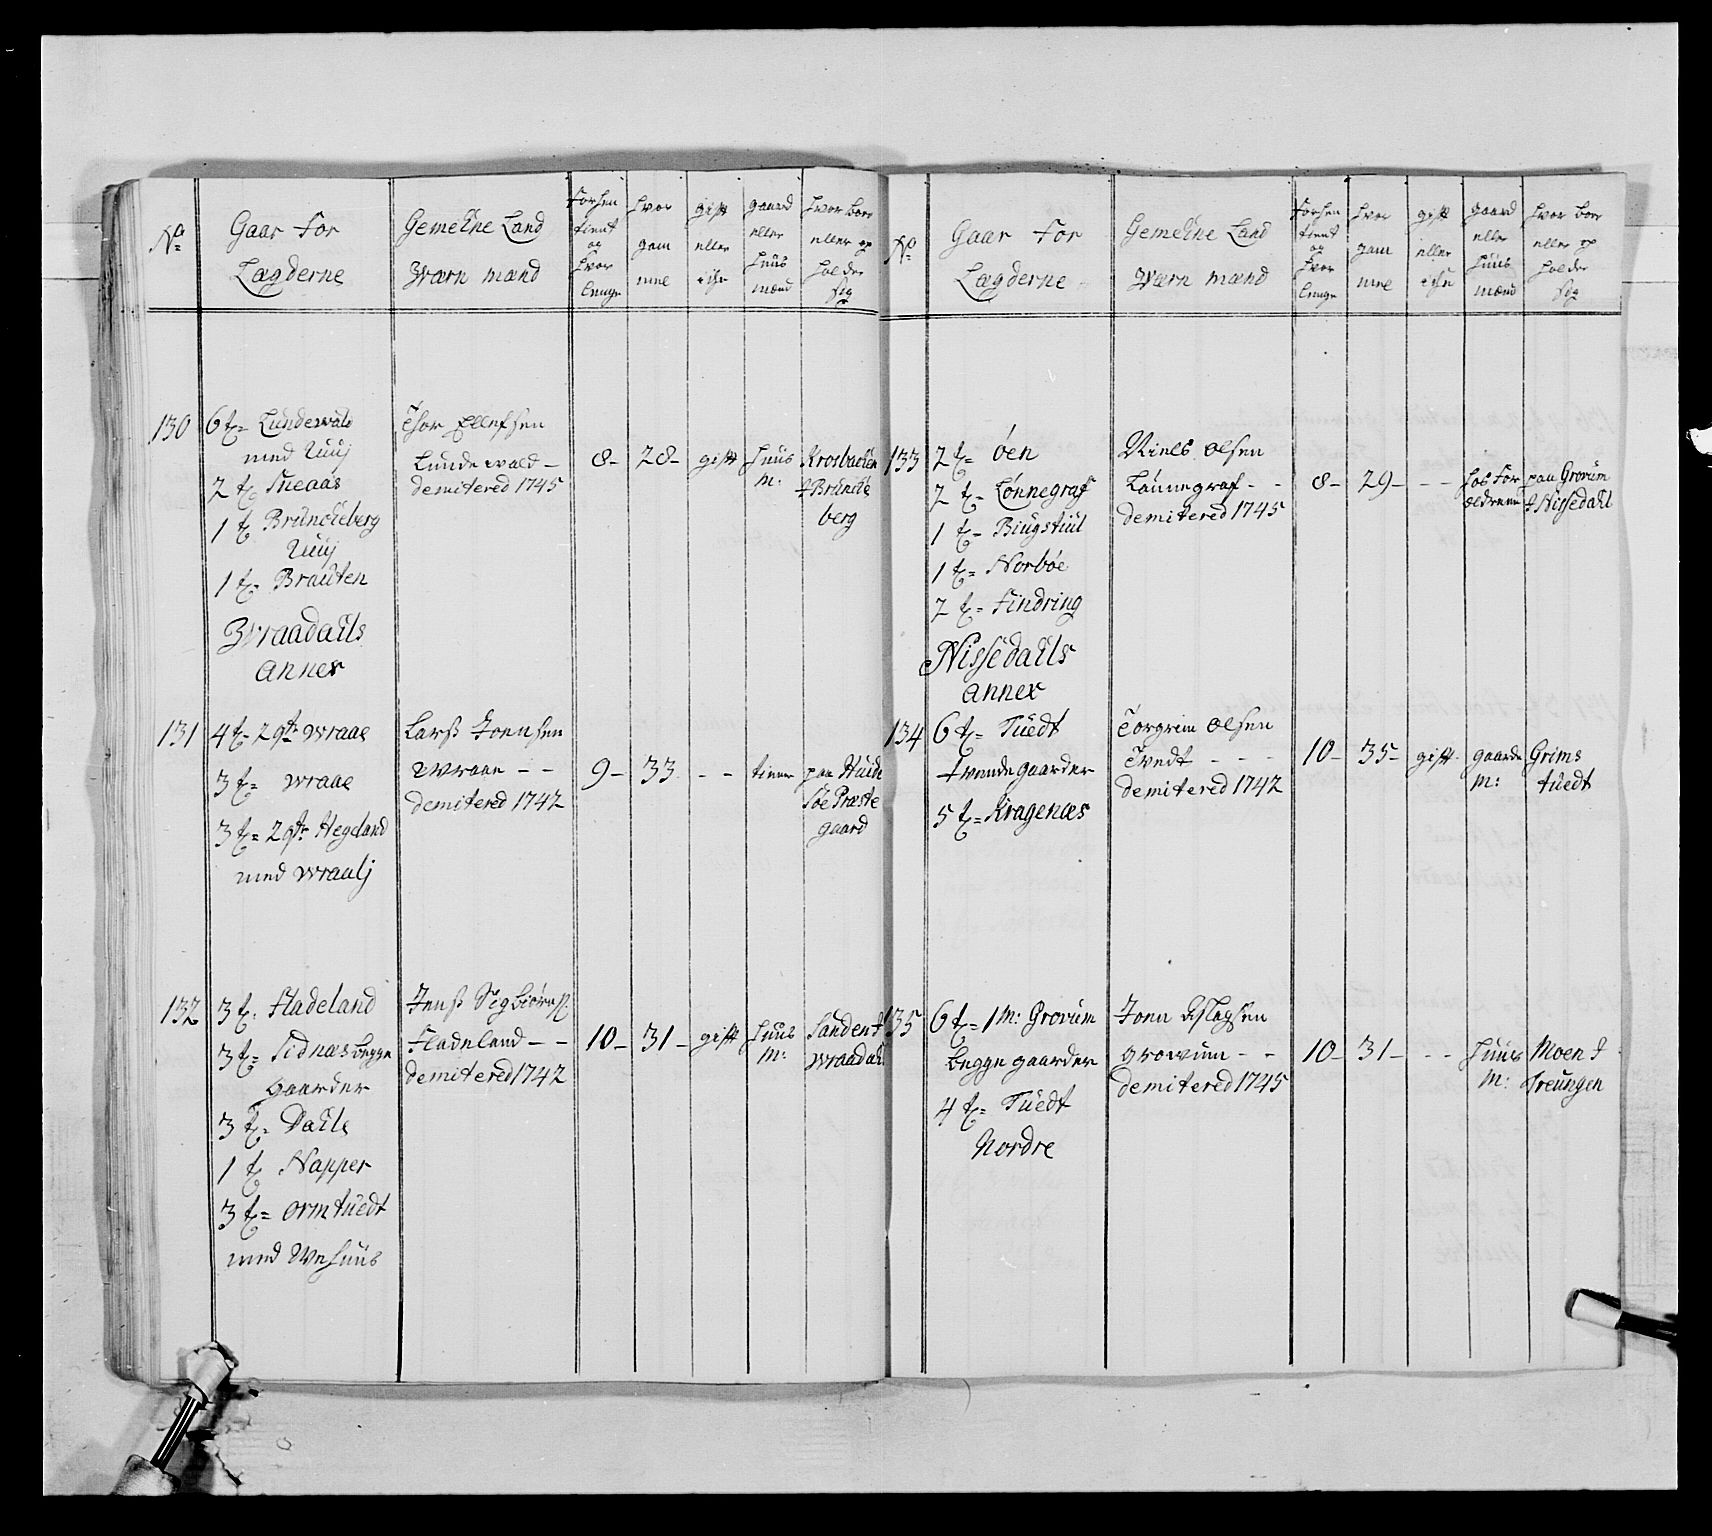 No
Gaar For
Lægderne
Gemeene Land
Wærn mænd
forhen
tient
og
hvor
lenge
hvor
gam
mel
gift
eller
eche
gaard
eller
huus
mænd
hvor boer
eller op
holder
sig
130
6 t= Lundewald
med Uuj
2 t= Sneaas
1 t Brunckeberg
Uuj
1 t= Brauten
Thor Ellefsen
Lundewald -
demitered 1745
8-
28-
gift
huus
m:
Krosbacken
i Bruncke
berg
Wraadahls
annex
131
4 t- 2 qtr wraae
3 t= wraae
3 t= 2 qtr Hegeland
med wraalj
Larss Joensen
Wraae - -
demitered 1742
9-
33
- -
tiener
paa Huide
søe Præste
gaard
132
3 t. Fladeland
3 t= Sidnæs begge
gaarder
3 t= Dahle
1 t Napper
3 t= ormtuedt
med Wehuus
Jenss Sigbiørns:
Fladeland - -
demitered 1742
10-
31-
gift
huus
m:
Sanden i
wraadal
No
Gaar For
Lægderne
Gemeene Land
Wærn mænd
forhen
tient
og
hvor
lenge
hvor
gam
mel
gift
eller
eche
gaard
eller
huus
mænd
hvor boer
eller op
holder
sig
133
2 t= øen
2 t= Lønnegraf
1 t= Biugstuul
1 t= Norbøe
2 t= Findring
Niels olsen
Lønnegraf - -
demitered 1745
8-
29-
- -
hos For
ældrene
paa Grovum
i Nissedahl
Nissedahls
annex
134
6 t= Tuedt
tvende gaarder
5 t= Kragenæs
Torgrim olsen
Tvedt - - -
demitered 1742
10-
35-
gift
gaarde
m:
Grims
tuedt
135
6 t= 1 m: Grovum
begge gaarder
4 t= Tuedt
Nordre
Joen Aslagsen
growum - -
demitered 1745
10-
31-
- -
huus
m:
Moen i
Treungen